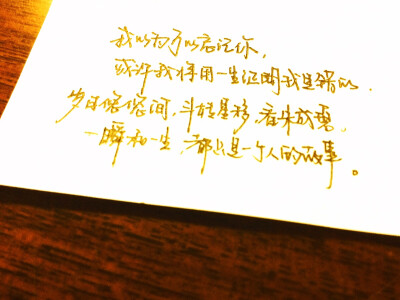 我以为可以忘记你,
或许我将用一生证明我是错的.
岁月悠悠间,斗转星移,春来成夏,
一瞬和一生,都只是一个人的故事。